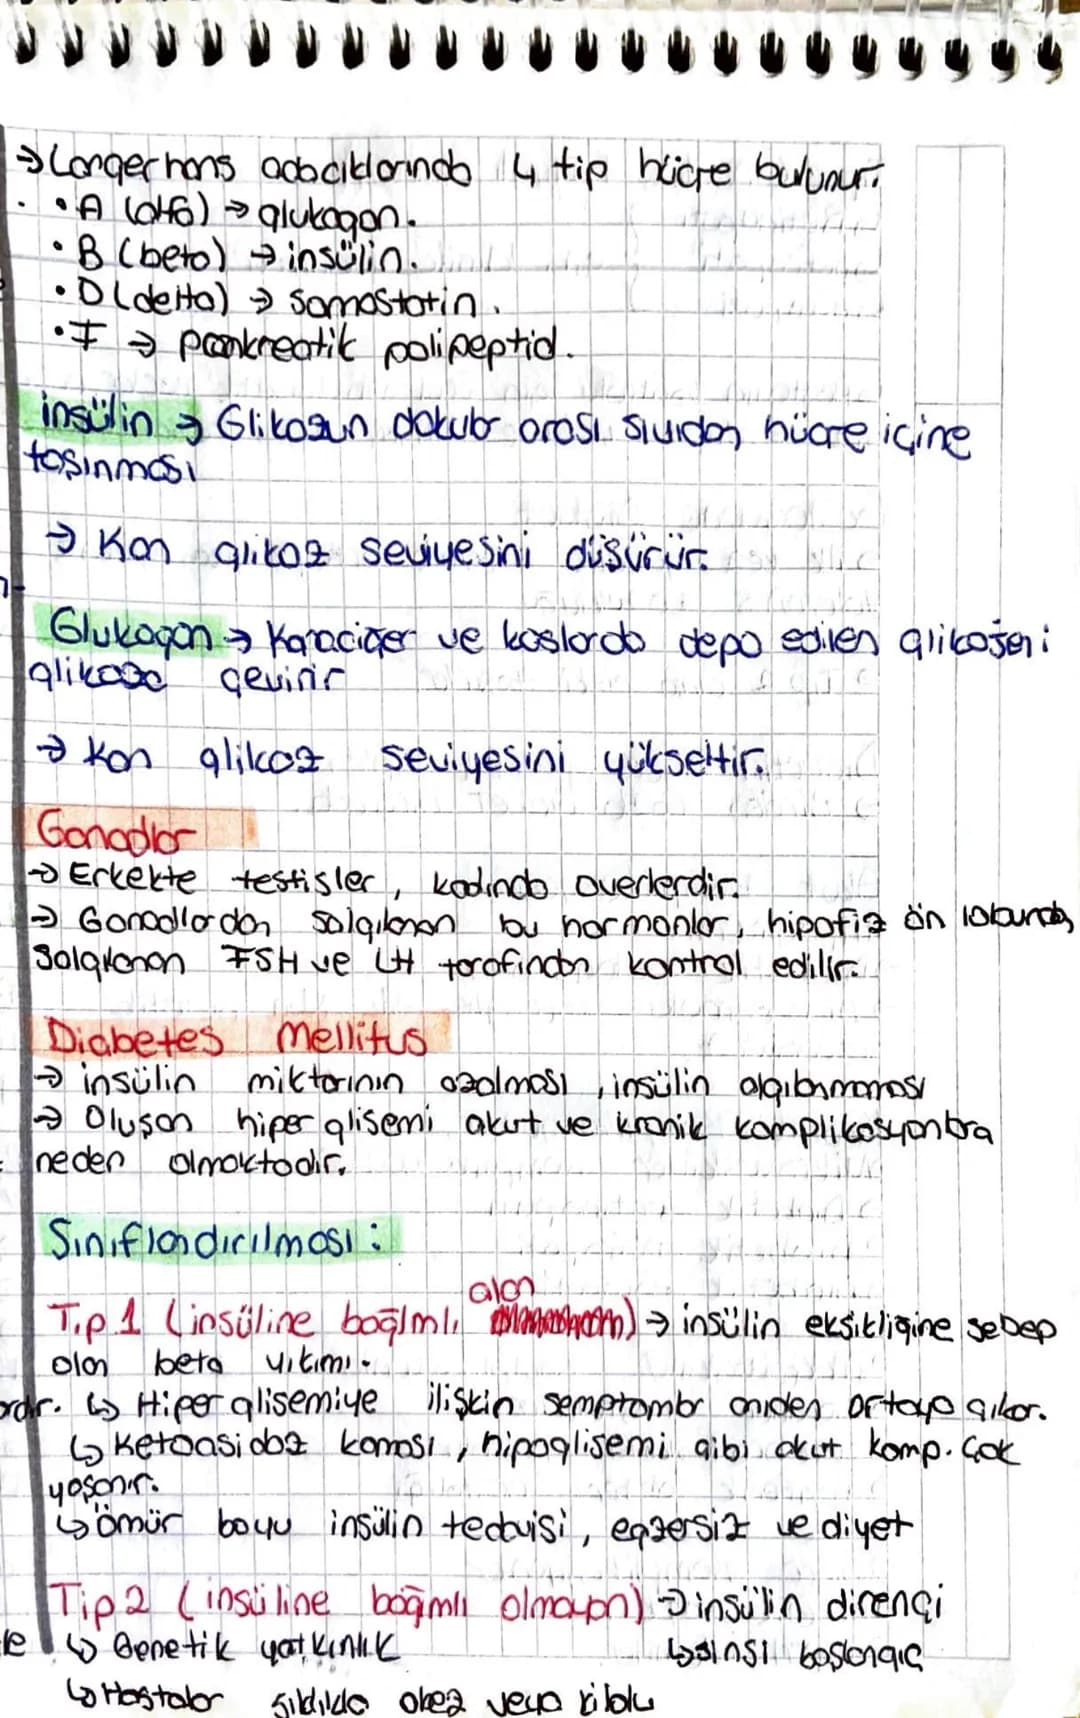 → Langerhans adacıklarında 4 tip hücre bulunur.
• A (alfa) → glukagon.
• B (beta) → insülin.
• D (delta) → Somostatin.
• F → pankreatik polipeptid.
insülin → Glikozun dokular arası sıvıdan hücre içine
taşınması
→ Kan glikoz seviyesini düşürür.
Glukagon → Karaciğer ve kaslarda depo edilen glikojeni
glikoza çevirir
→ Kan glikoz seviyesini yükseltir.
Gonadlar
→ Erkekte testisler, kadında overlerdir.
→ Gonadlardan salgılanan bu hormonlar, hipofiz ön lobundan
Salgılanan FSH ve LH tarafından kontrol edilir.
Diabetes Mellitus
→ insülin miktarının azalması, insülin algılanmaması
→ Oluşan hiperglisemi akut ve kronik komplikasyonlara
neden olmaktadır.
Sınıflandırılması:
alan
Tip 1 (insüline bağımlı) → insülin eksikliğine sebep
olan beta yıkımı.
↳ Hiperglisemiye ilişkin semptomlar aniden ortaya çıkar.
↳ Ketoasidoz koması, hipoglisemi gibi akut komp. Çok
yaşanır.
↳ ömür boyu insülin tedavisi, egzersiz ve diyet
Tip 2 (insüline bağımlı olmayan) → insülin direnci
↳ Genetik yatkınlık ↳ sinsi başlangıç
↳ Hastalar sıklıkla obez veya kilolu